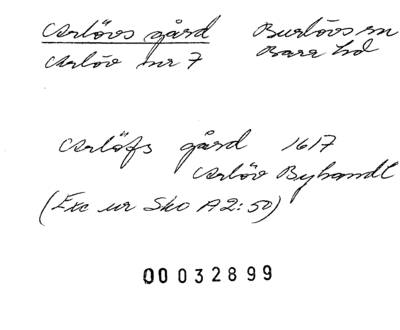 Arlövs gård Burlövs sn
Arlöv nr 7 Bara hd
Arlöfs gård 1617
Arlöv Byhandl
(Exc ur Sko A2:50)
00032899